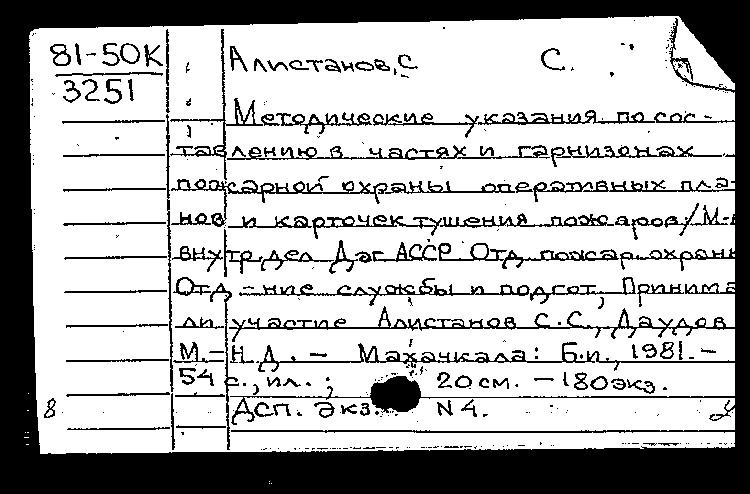 81-50К Алистанов, С С.
3251
Методические указания по сос-
тавлению в частях и гарнизонах
пожарной охраны оперативных пла-
нов и карточек тушения пожаров/М-в
внутр.дел Даг АССР Отд пожар.охраны
Отд-ние службы и подгот, Принима
ли участие Алистанов С.С., Даудов
М.-Н.Д. - Махачкала: Б.и., 1981.-
54 с., ил.; 20см. -180экз.
8 ДСП. Экз. N4.